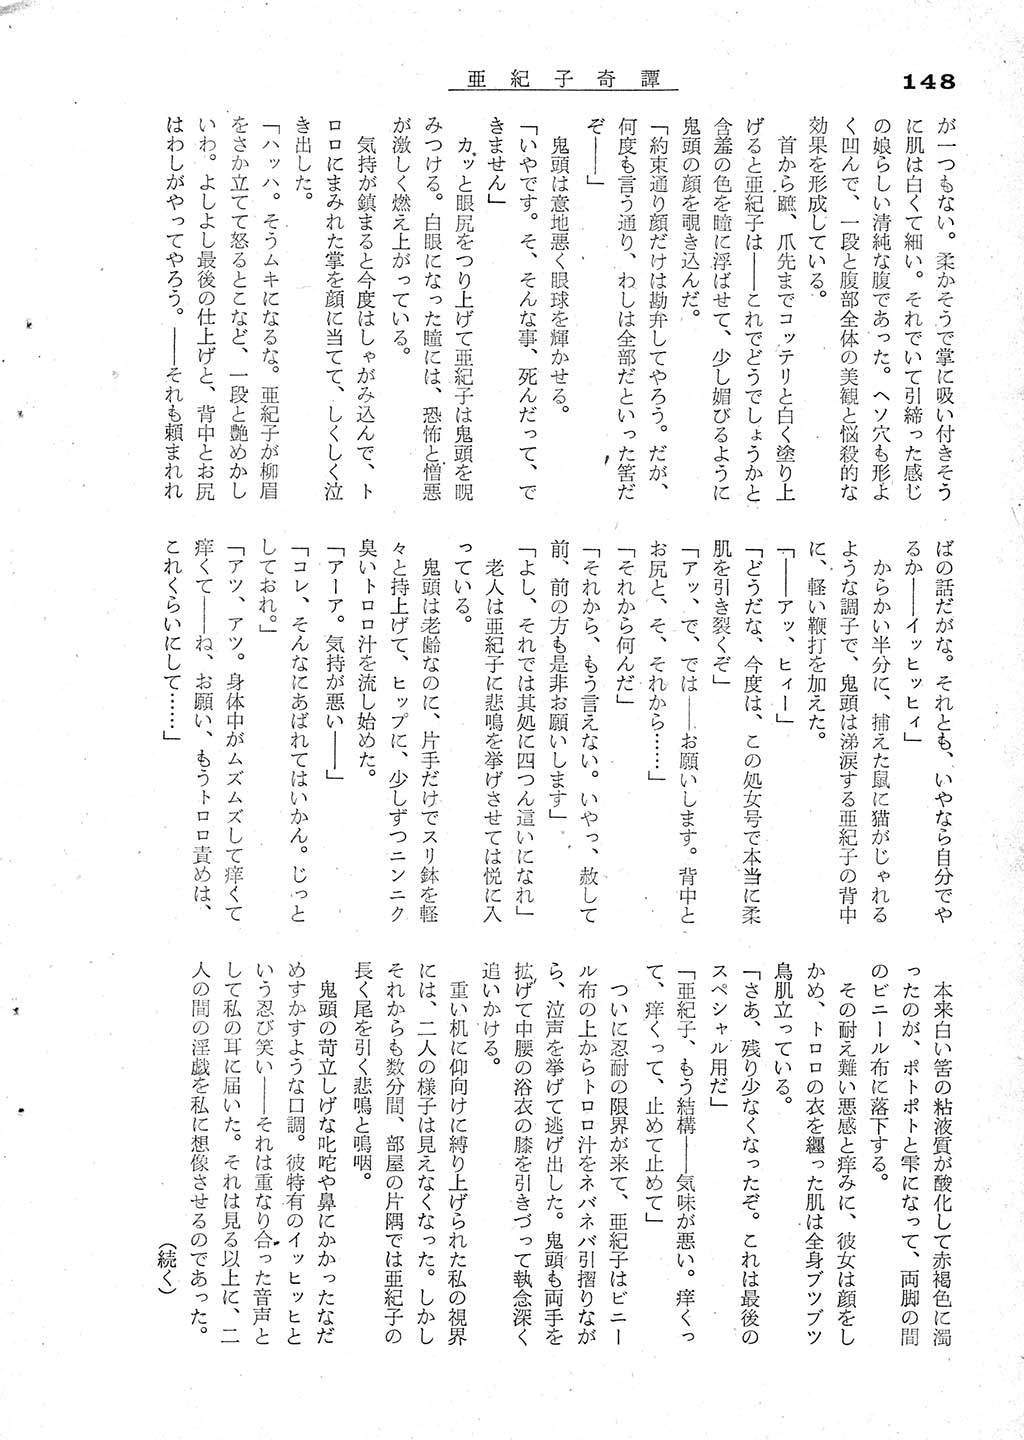 亜紀子奇譚
148
が一つもない。柔かそうで掌に吸い付きそう
に肌は白くて細い。それでいて引締った感じ
の娘らしい清純な腹であった。ヘソ穴も形よ
く凹んで、一段と腹部全体の美観と悩殺的な
効果を形成している。
首から蹠、爪先までコッテリと白く塗り上
げると亜紀子は――これでどうでしょうかと
含羞の色を瞳に浮ばせて、少し媚びるように
鬼頭の顔を覗き込んだ。
「約束通り顔だけは勘弁してやろう。だが、
何度も言う通り、わしは全部だといった筈だ
ぞ――」
鬼頭は意地悪く眼球を輝かせる。
「いやです。そ、そんな事、死んだって、で
きません」
カッと眼尻をつり上げて亜紀子は鬼頭を睨
みつける。白眼になった瞳には、恐怖と憎悪
が激しく燃え上がっている。
気持が鎮まると今度はしゃがみ込んで、ト
ロロにまみれた掌を顔に当てて、しくしく泣
き出した。
「ハッハ。そうムキになるな。亜紀子が柳眉
をさか立てて怒るとこなど、一段と艶めかし
いわ。よしよし最後の仕上げと、背中とお尻
はわしがやってやろう。――それも頼まれれ
ばの話だがな。それとも、いやなら自分でや
るか――イッヒッヒィ」
からかい半分に、捕えた鼠に猫がじゃれる
ような調子で、鬼頭は涕涙する亜紀子の背中
に、軽い鞭打を加えた。
「――アッ、ヒィー」
「どうだな、今度は、この処女号で本当に柔
肌を引き裂くぞ」
「アッ、で、では――お願いします。背中と
お尻と、そ、それから……」
「それから何んだ」
「それから、もう言えない。いやっ、赦して
前、前の方も是非お願いします」
「よし、それでは其処に四つん這いになれ」
老人は亜紀子に悲鳴を挙げさせては悦に入
っている。
鬼頭は老齢なのに、片手だけでスリ鉢を軽
々と持上げて、ヒップに、少しずつニンニク
臭いトロロ汁を流し始めた。
「アーア。気持が悪い――」
「コレ、そんなにあばれてはいかん。じっと
しておれ。」
「アツ、アツ。身体中がムズムズして痒くて
痒くて――ね、お願い、もうトロロ責めは、
これくらいにして……」
本来白い筈の粘液質が酸化して赤褐色に濁
ったのが、ポトポトと雫になって、両脚の間
のビニール布に落下する。
その耐え難い悪感と痒みに、彼女は顔をし
かめ、トロロの衣を纒った肌は全身ブツブツ
鳥肌立っている。
「さあ、残り少なくなったぞ。これは最後の
スペシャル用だ」
「亜紀子、もう結構――気味が悪い。痒くっ
て、痒くって、止めて止めて」
ついに忍耐の限界が来て、亜紀子はビニー
ル布の上からトロロ汁をネバネバ引摺りなが
ら、泣声を挙げて逃げ出した。鬼頭も両手を
拡げて中腰の浴衣の膝を引きづって執念深く
追いかける。
重い机に仰向けに縛り上げられた私の視界
には、二人の様子は見えなくなった。しかし
それからも数分間、部屋の片隅では亜紀子の
長く尾を引く悲鳴と嗚咽。
鬼頭の苛立しげな叱咤や鼻にかかったなだ
めすかすような口調。彼特有のイッヒッヒと
いう忍び笑い――それは重なり合った音声と
して私の耳に届いた。それは見る以上に、二
人の間の淫戯を私に想像させるのであった。
（続く）